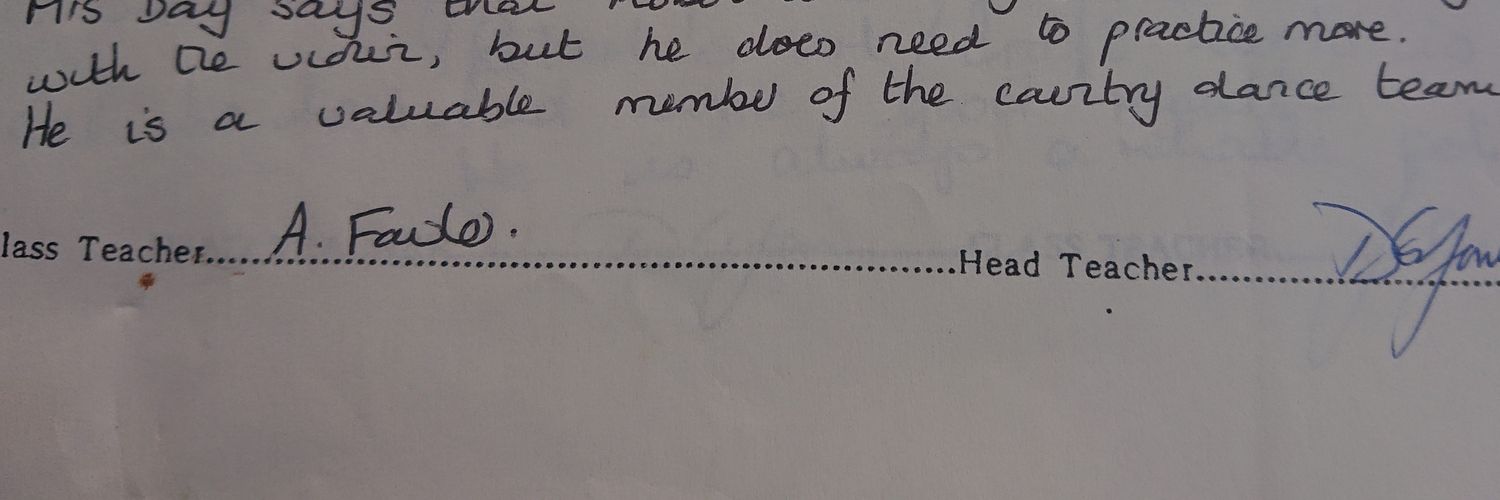 Mrs Day says that
with the violin, but he does need to practice more.
He is a valuable member of the country dance team
lass Teacher..... A. Fowle. ..........Head Teacher..........